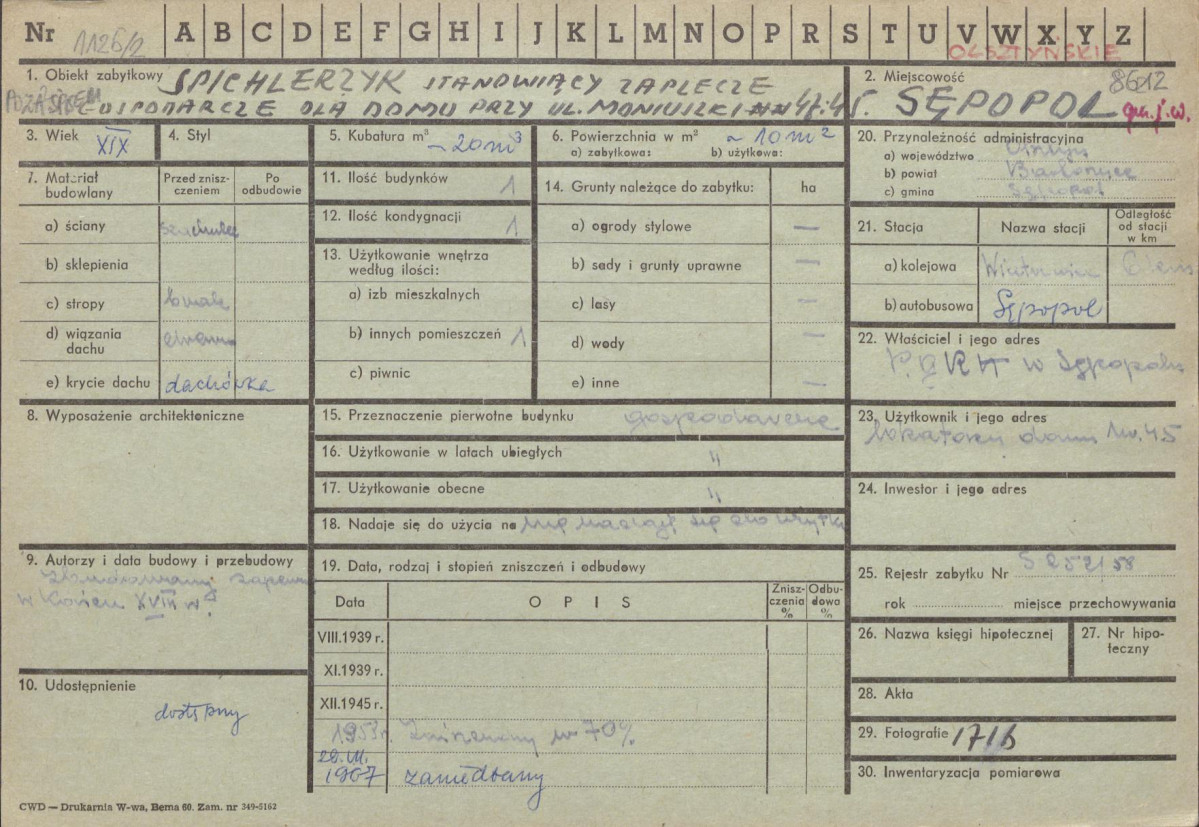 Nr 1126/2 A B C D E F G H I J K L M N O P R S T U V W X Y Z
OLSZTYŃSKIE
1. Obiekt zabytkowy SPICHLERZYK STANOWIĄCY ZAPLECZE
GOSPODARCZE DLA DOMU PRZY UL. MONIUSZKI 47.45
2. Miejscowość 86012
SĘPOPOL
3. Wiek XIX
4. Styl
5. Kubatura m³ ~20m³
6. Powierzchnia w m² ~10m²
a) zabytkowa: b) użytkowa:
20. Przynależność administracyjna
a) województwo Olsztyn
b) powiat Bartoszyce
c) gmina Sępopol
7. Materiał budowlany
Przed zniszczeniem
Po odbudowie
a) ściany
b) sklepienia
c) stropy
d) wiązania dachu
e) krycie dachu dachówka
11. Ilość budynków 1
12. Ilość kondygnacji 1
13. Użytkowanie wnętrza według ilości:
a) izb mieszkalnych
b) innych pomieszczeń 1
c) piwnic
14. Grunty należące do zabytku: ha
a) ogrody stylowe —
b) sady i grunty uprawne —
c) lasy —
d) wody —
e) inne —
21. Stacja Nazwa stacji Odległość od stacji w km
a) kolejowa
b) autobusowa Sępopol
22. Właściciel i jego adres
w Sępopolu
8. Wyposażenie architektoniczne
15. Przeznaczenie pierwotne budynku gospodarcze
16. Użytkowanie w latach ubiegłych "
17. Użytkowanie obecne "
18. Nadaje się do użycia na nie nadaje się do użytku
23. Użytkownik i jego adres
lokatorzy domu Nr. 45
24. Inwestor i jego adres
9. Autorzy i data budowy i przebudowy
zbudowany zapewne
w końcu XVIII w.
10. Udostępnienie
dostępny
19. Data, rodzaj i stopień zniszczeń i odbudowy
Data OPIS Zniszczenia % Odbudowa %
VIII.1939 r.
XI.1939 r.
XII.1945 r.
1953r. Zniszczony w 70%
1967 zaniedbany
25. Rejestr zabytku Nr S 252/58
rok miejsce przechowywania
26. Nazwa księgi hipotecznej
27. Nr hipoteczny
28. Akta
29. Fotografie
30. Inwentaryzacja pomiarowa
CWD — Drukarnia W-wa, Bema 60. Zam. nr 349-5162